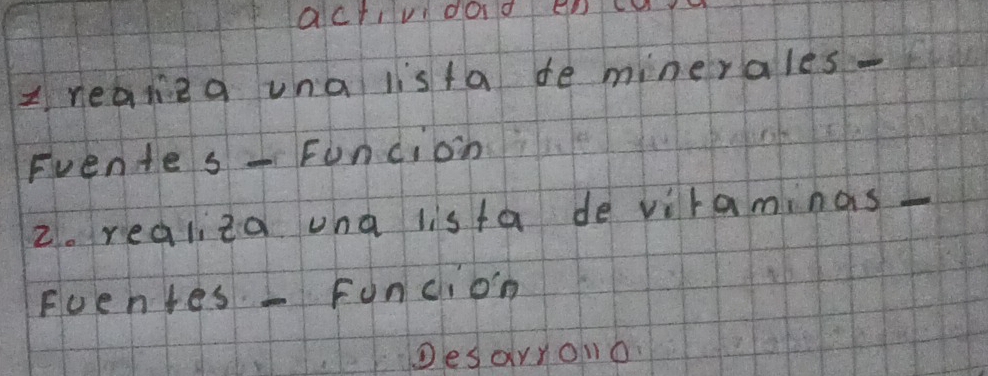 actividad en casa
1. realiza una lista de minerales -
Fuentes - Función
2. realiza una lista de vitaminas -
Fuentes - Función
Desarrollo